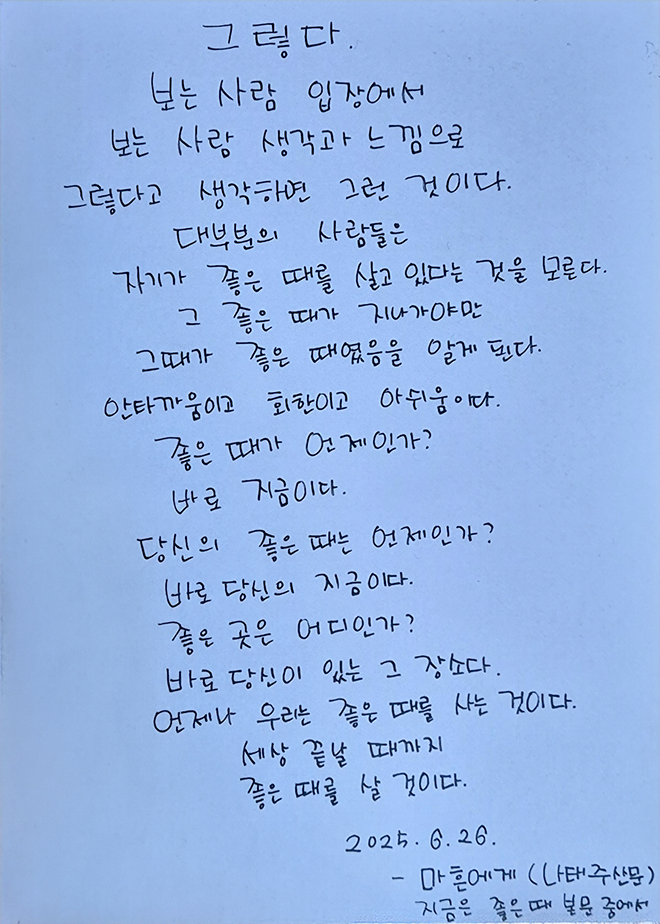 그렇다.
보는 사람 입장에서
보는 사람 생각과 느낌으로
그렇다고 생각하면 그런 것이다.
대부분의 사람들은
자기가 좋은 때를 살고 있다는 것을 모른다.
그 좋은 때가 지나가야만
그때가 좋은 때였음을 알게 된다.
안타까움이고 회한이고 아쉬움이다.
좋은 때가 언제인가?
바로 지금이다.
당신의 좋은 때는 언제인가?
바로 당신의 지금이다.
좋은 곳은 어디인가?
바로 당신이 있는 그 장소다.
언제나 우리는 좋은 때를 사는 것이다.
세상 끝날 때까지
좋은 때를 살 것이다.
2025. 6. 26.
- 마흔에게 (나태주산문)
지금은 좋은때 본문 중에서